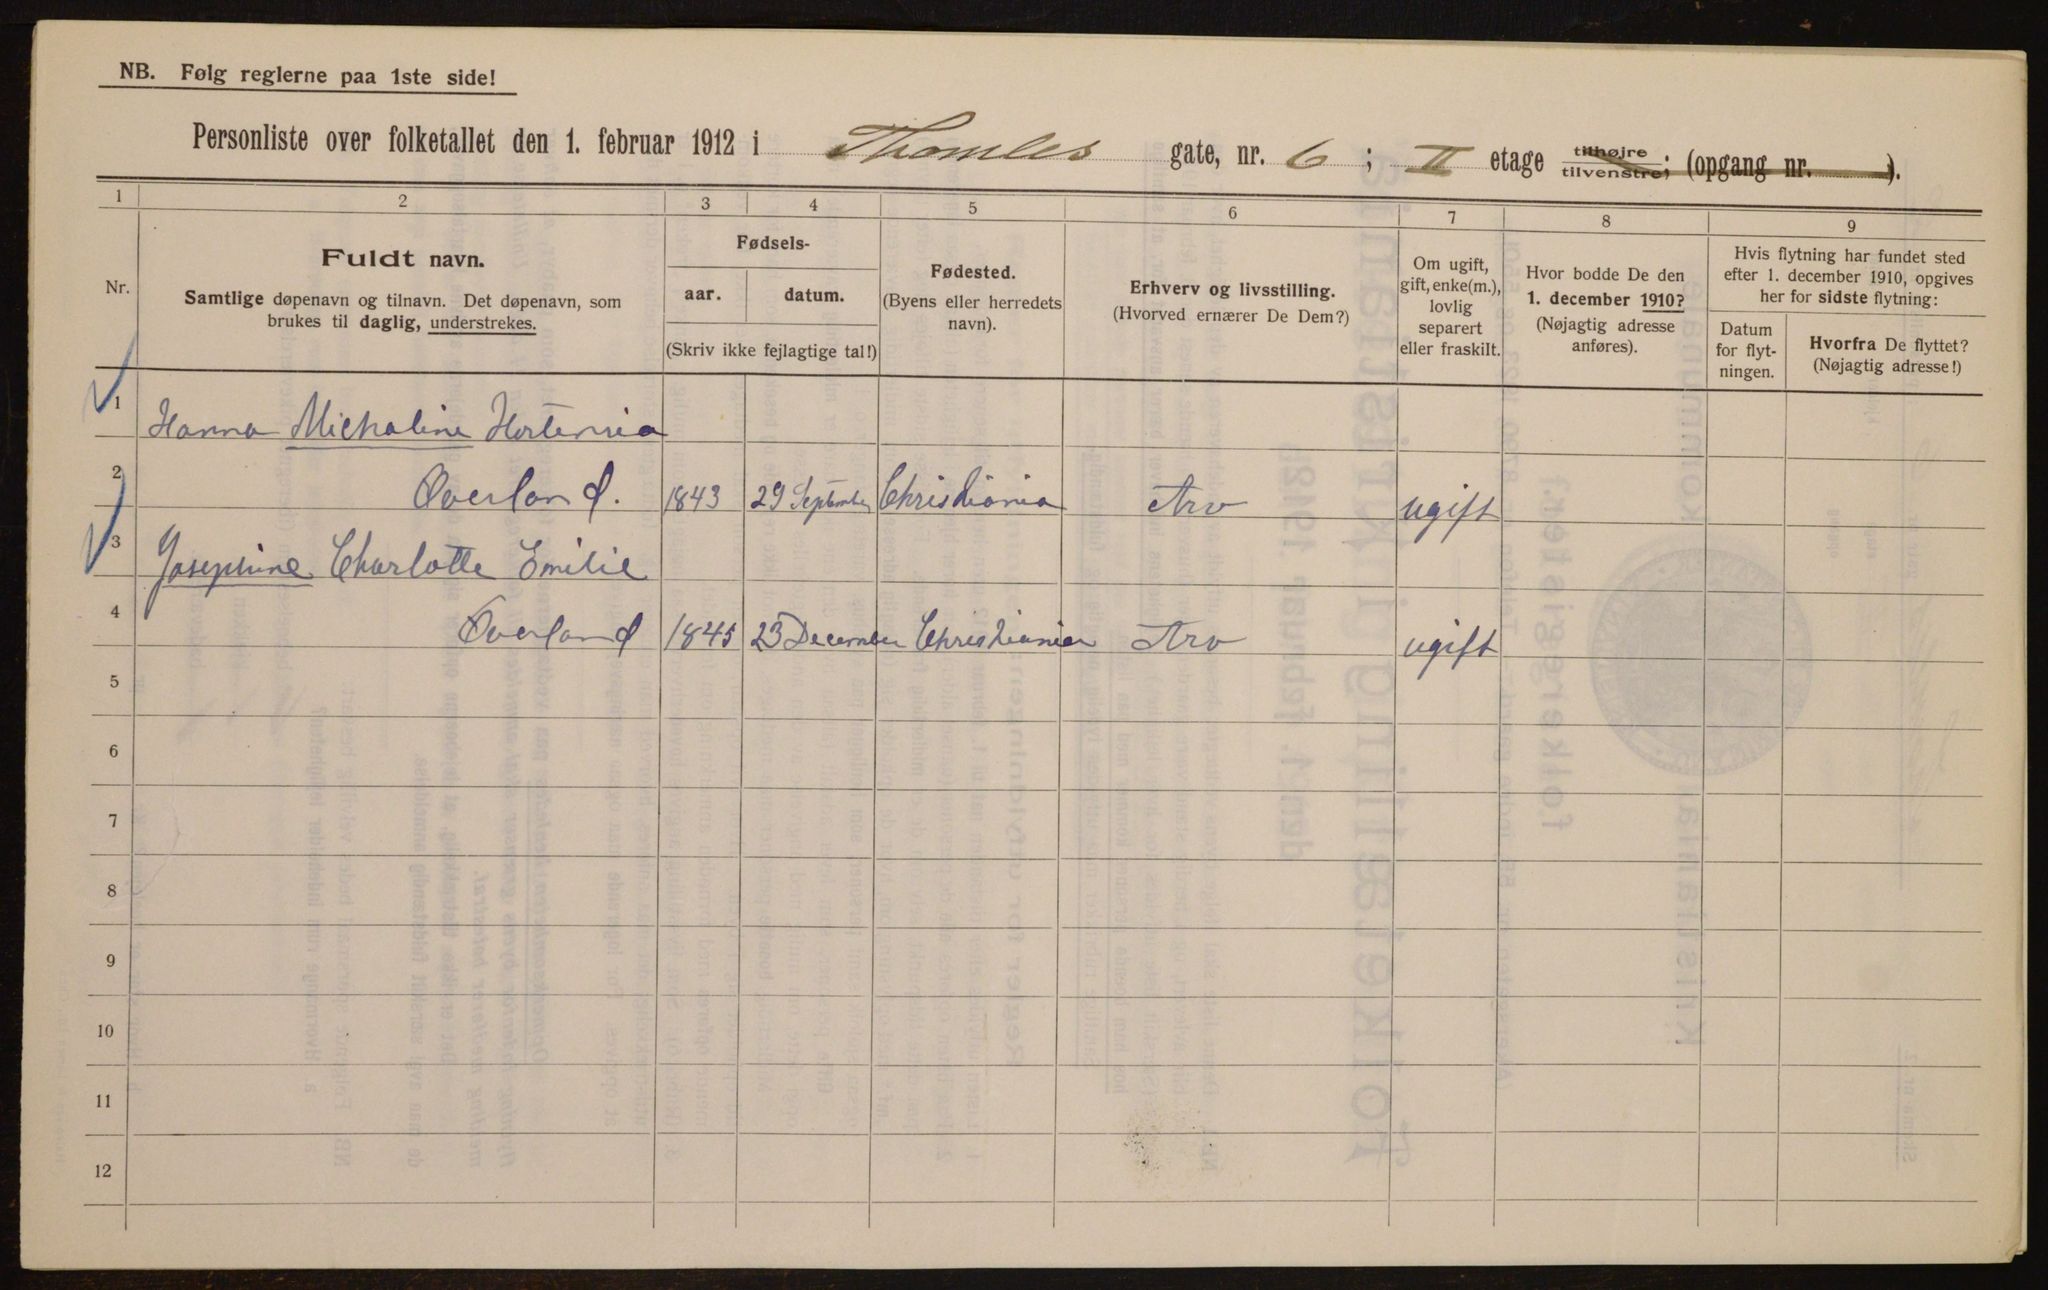 NB. Følg reglerne paa 1ste side!
Personliste over folketallet den 1. februar 1912 i Thomles gate, nr. 6 ; II etage tilhøjre tilvenstre; (opgang nr. ).
1 2 3 4 5 6 7 8 9
Nr.
Fuldt navn.
Samtlige døpenavn og tilnavn. Det døpenavn, som
brukes til daglig, understrekes.
Fødsels-
aar. datum.
(Skriv ikke fejlagtige tal!)
Fødested.
(Byens eller herredets
navn).
Erhverv og livsstilling.
(Hvorved ernærer De Dem?)
Om ugift,
gift, enke(m.),
lovlig
separert
eller fraskilt.
Hvor bodde De den
1. december 1910?
(Nøjagtig adresse
anføres).
Hvis flytning har fundet sted
efter 1. december 1910, opgives
her for sidste flytning:
Datum
for flyt-
ningen.
Hvorfra De flyttet?
(Nøjagtig adresse!)
1 Hanna Michaline Hortensia
2 Øverland. 1843 29 September Christiania Arv ugift
3 Josephine Charlotte Emilie
4 Øverland 1845 23 December Christiania Arv ugift
5
6
7
8
9
10
11
12